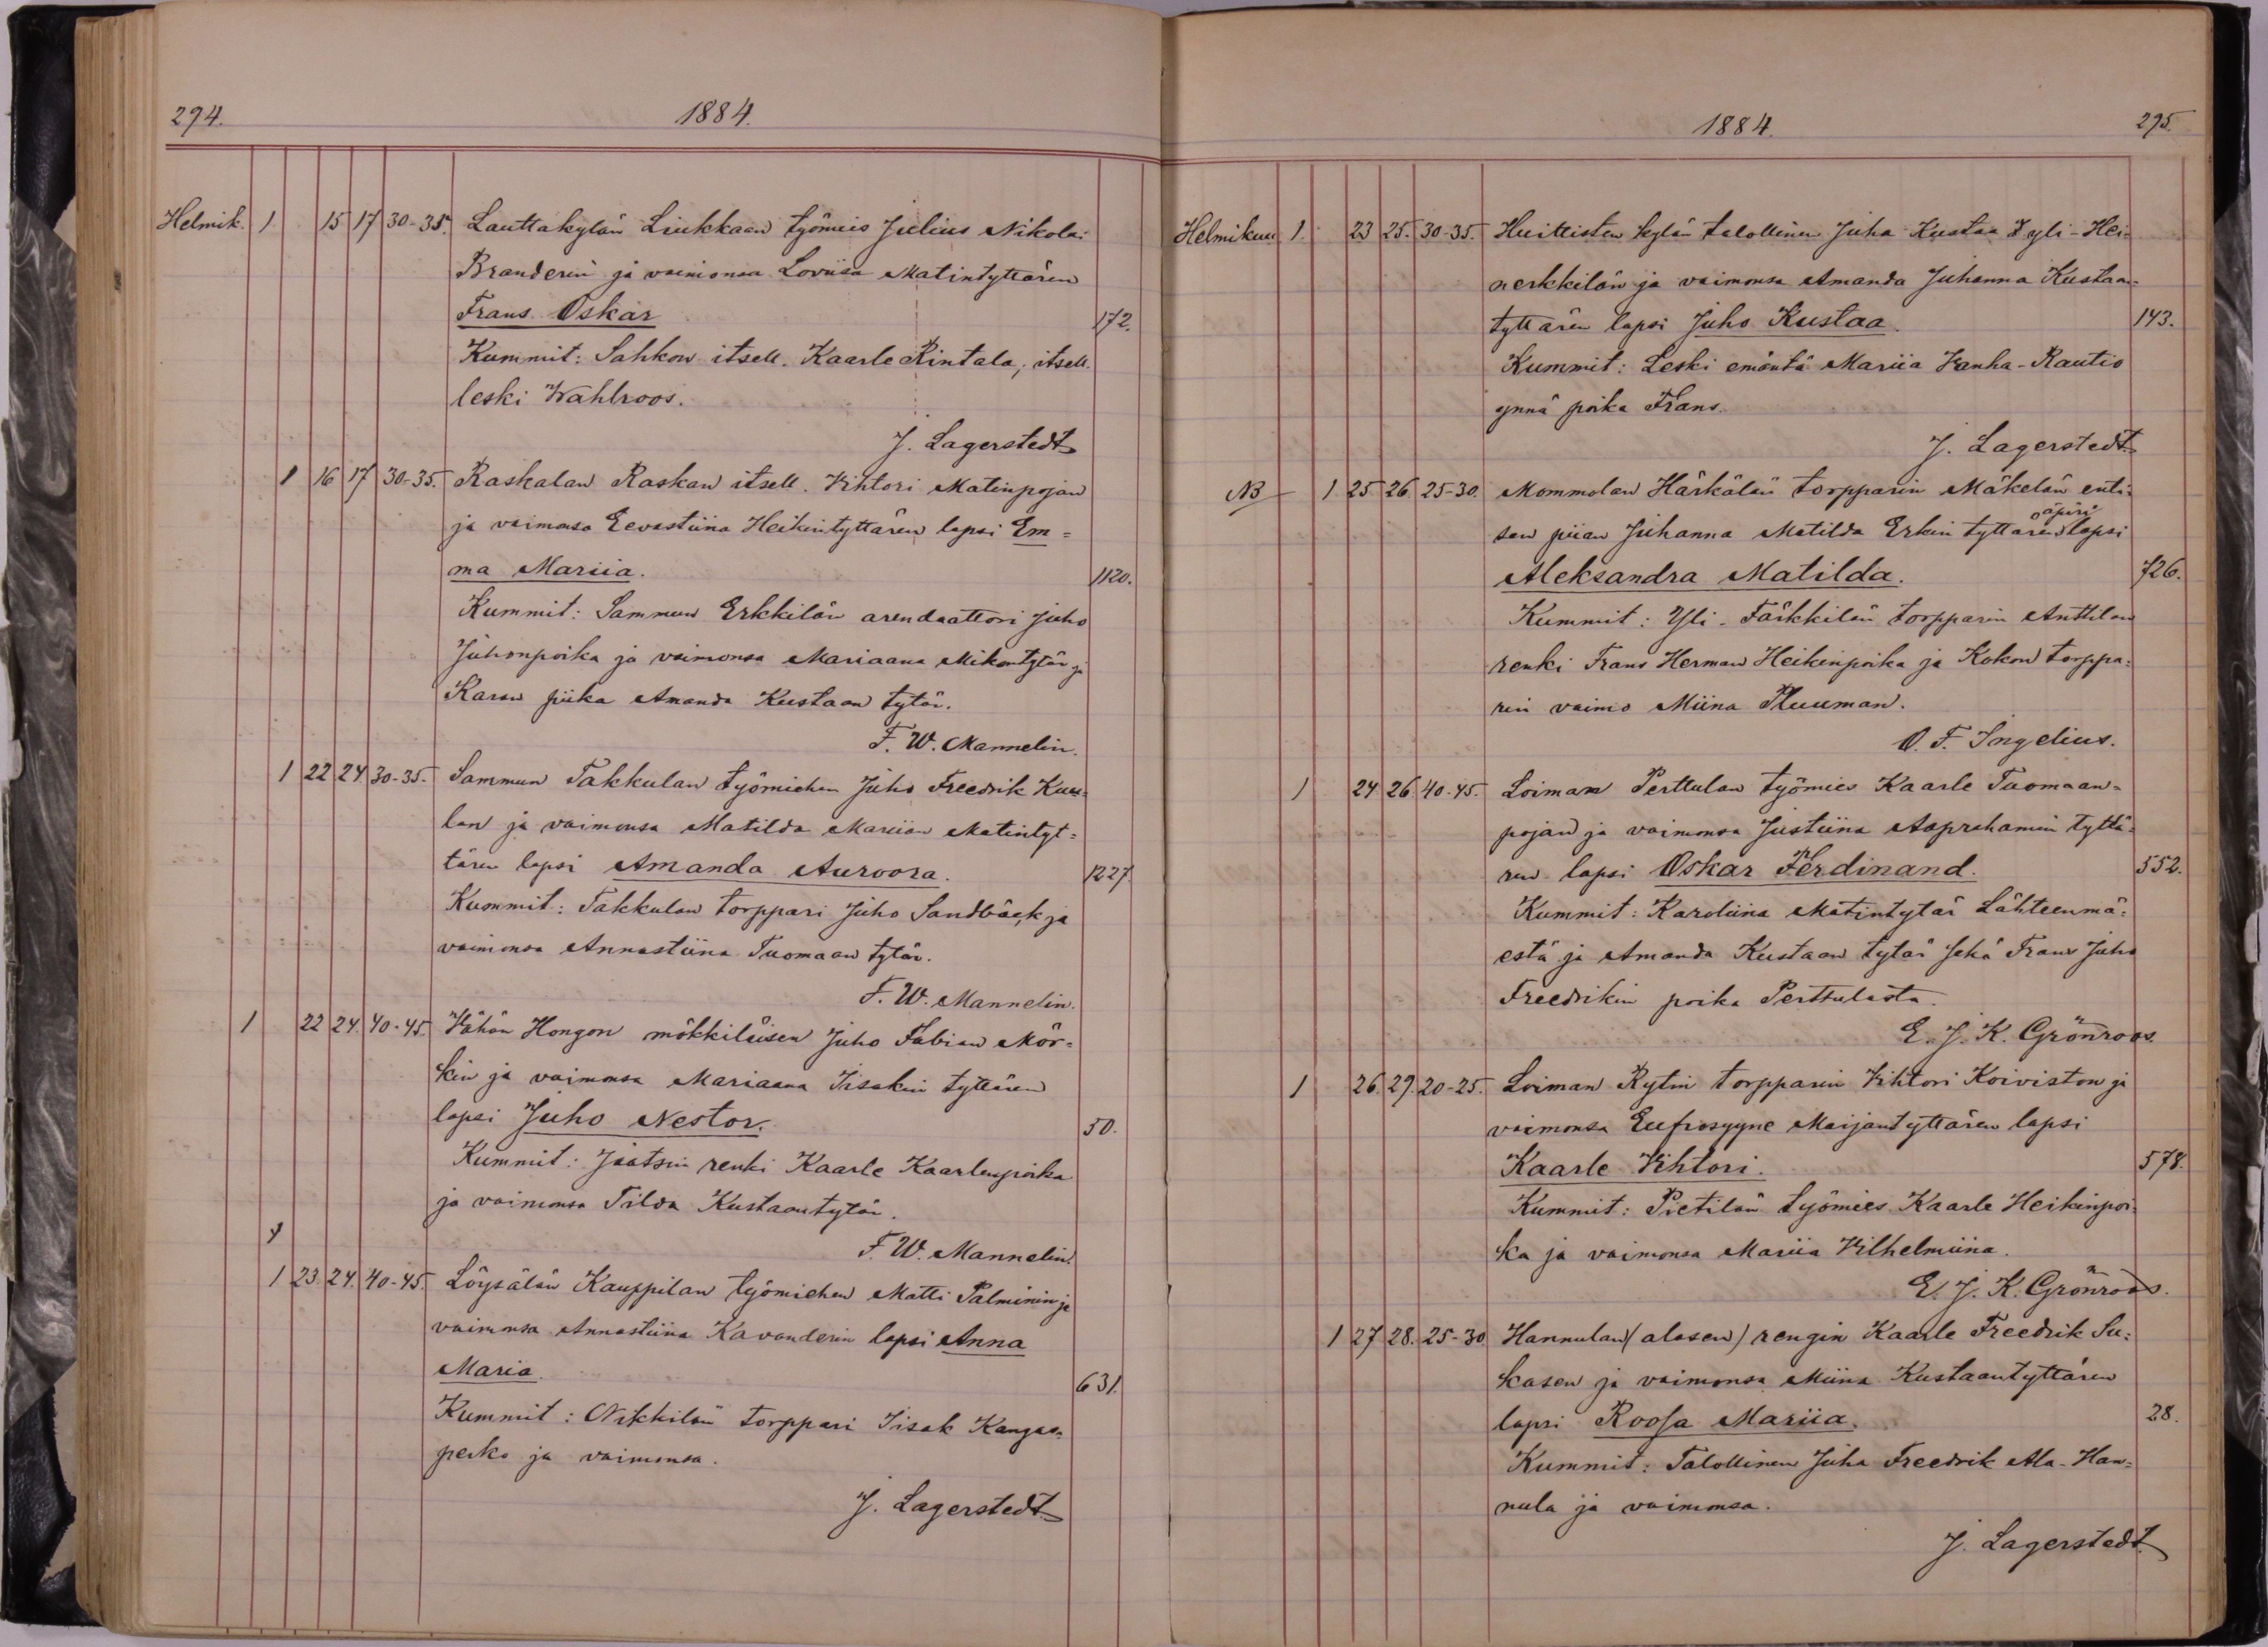 294.
1884.
Helmik. 1 15 17 30-35. Lauttakylän Liukkaan työmies Julius Nikolai
Branderin ja vaimonsa Loviisa Matintyttären
Frans Oskar 172.
Kummit: Sahkon itsell. Kaarle Rintala, itsell.
leski Wahlroos.
J. Lagerstedt
1 16 17 30-35. Raskalan Raskan itsell. Vihtori Matinpojan
ja vaimonsa Eevastiina Heikintyttären lapsi Em=
ma Mariia. 1120.
Kummit: Sammun Erkkilän arendaattori Juho
Juhonpoika ja vaimonsa Mariaana Mikontytär ja
Karan piika Amanda Kustaan tytär.
F. W. Mannelin.
1 22 24. 30-35. Sammun Takkulan työmiehen Juho Freedrik Kuu=
lan ja vaimonsa Matilda Mariian Matintyt=
tären lapsi Amanda Auroora. 1227.
Kummit: Takkulan torppari Juho Sandbäck ja
vaimonsa Annastiina Tuomaan tytär.
F. W. Mannelin.
1 22 24. 40-45. Vähän Hongon mökkiläisen Juho Fabian Mör=
kin ja vaimonsa Mariaana Iisakin tyttären
lapsi Juho Nestor. 50.
Kummit: Jaatsin renki Kaarle Kaarlenpoika
ja vaimonsa Tilda Kustaantytär.
F. W. Mannelin.
1 23. 24. 40-45. Löysälän Kauppilan työmiehen Matti Palminin ja
vaimonsa Annastiina Kavanderin lapsi Anna
Maria. 631.
Kummit: Nikkilän torppari Iisak Kangas=
perko ja vaimonsa.
J. Lagerstedt
1884.
295.
Helmikuu 1. 23 25. 30-35. Huittisten kylän talollinen Juha Kustaa Yli-Hei=
nerkkilän ja vaimonsa Amanda Juhanna Kustaan=
tyttären lapsi Juho Kustaa. 143.
Kummit: Leski emäntä Mariia Vanha-Rautio
ynnä poika Frans.
J. Lagerstedt
NB 1 25 26. 25-30. Mommolan Härkälän torpparin Mäkelän enti=
sen piian Juhanna Matilda Erkin tyttären äpärä lapsi
Aleksandra Matilda. 726.
Kummit: Yli-Färkkilän torpparin Anttilan
renki Frans Herman Heikinpoika ja Kokon torppa=
rin vaimo Miina Pluuman.
O. F. Ingelius.
1 24 26. 40-45. Loiman Perttulan työmies Kaarle Tuomaan=
pojan ja vaimonsa Justiina Aaprahamin tyttä=
ren lapsi Oskar Ferdinand. 552.
Kummit: Karoliina Matintytär Lähteenmä=
estä ja Amanda Kustaan tytär sekä Frans Juho
Freedrikin poika Perttulasta.
E. J. K. Grönroos.
1 26. 29. 20-25. Loiman Rytin torpparin Vihtori Koiviston ja
vaimonsa Eufrosyyne Maijantyttären lapsi
Kaarle Vihtori. 578.
Kummit: Pietilän työmies Kaarle Heikinpoi=
ka ja vaimonsa Mariia Vilhelmiina.
E. J. K. Grönroos.
1 27 28. 25-30 Hannulan (alasen) rengin Kaarle Freedrik Su=
kasen ja vaimonsa Miina Kustaantyttären
lapsi Roosa Mariia. 28.
Kummit: Talollinen Juha Freedrik Ala-Han=
nula ja vaimonsa.
J. Lagerstedt